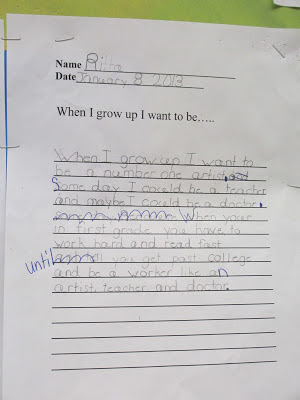 Name Ritta
Date January 8 2013
When I grow up I want to be.....
When I grow up I want to
be a number one artist.
Some day I could be a teacher
and maybe I could be a doctor.
When your
in first grade you have to
work hard and read fast
until you get past college
and be a worker like an
artist, teacher and doctor.